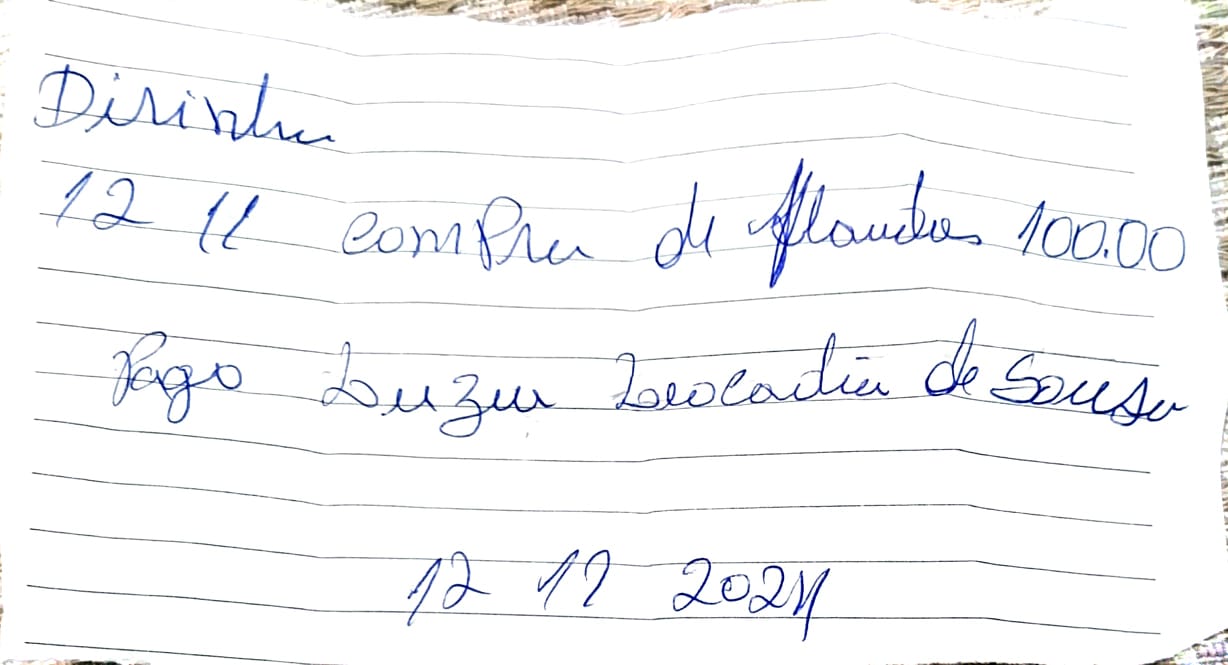 Dirinha
12 11 compra de flaudas 100.00
Pago Luzia Leocadia de Sousa
12 12 2024